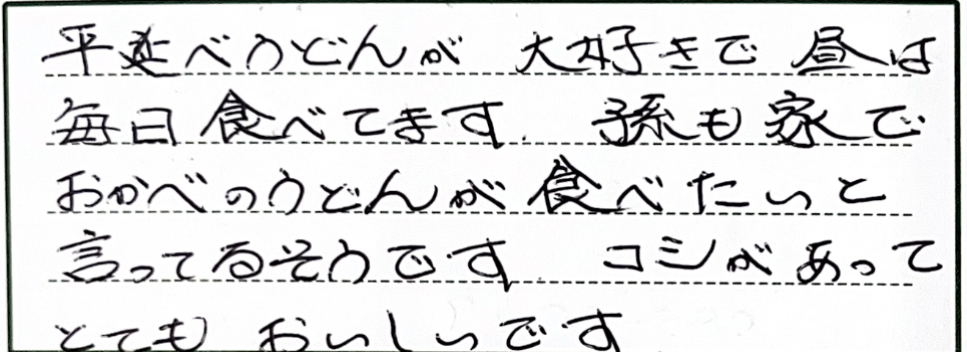 平延べうどんが 大好きで 昼は
毎日食べてます. 孫も家で
おかべのうどんが食べたいと
言ってるそうです. コシがあって
とても おいしいです